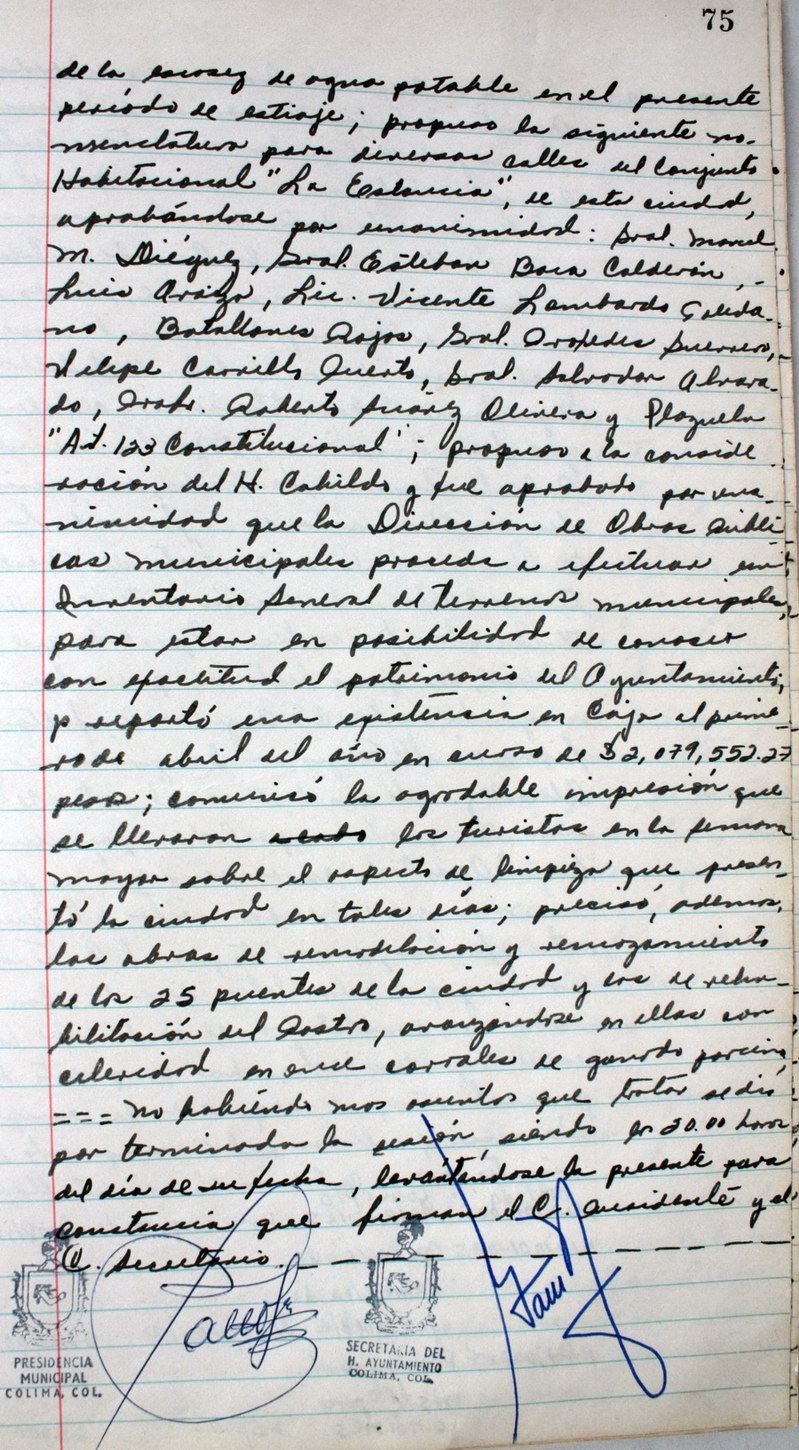 75
de la escasez de agua potable en el presente
período de estiaje; propuso la siguiente no-
menclatura para diversas calles del Conjunto
Habitacional "La Estancia", de esta ciudad,
aprobándose por unanimidad: Gral. Manuel
M. Diéguez, Gral. Esteban Baca Calderón,
Luis Araiza, Lic. Vicente Lombardo Toleda-
no, Batallones Rojos, Gral. Práxedis Guerrero,
Felipe Carrillo Puerto, Gral. Salvador Alvara-
do, Profr. Roberto Suárez Olvera y Plazuela
"Art. 123 Constitucional"; propuso a la conside-
ración del H. Cabildo y fue aprobado por una-
nimidad que la Dirección de Obras Públi-
cas municipales proceda a efectuar un
Inventario General de terrenos municipales,
para estar en posibilidad de conocer
con exactitud el patrimonio del Ayuntamiento,
y reportó una existencia en Caja al prime-
ro de abril del año en curso de $2,079,552.27
pesos; comunicó la agradable impresión que
se llevaron los turistas en la semana
mayor sobre el aspecto de limpieza que presen-
tó la ciudad en tales días; precisó, además,
las obras de remodelación y remozamiento
de los 25 puentes de la ciudad y las de reha-
bilitación del Rastro, avanzándose en ellas con
celeridad en once corrales de ganado porcino
=== No habiendo mas asuntos que tratar se dió
por terminada la sesión, siendo las 20.00 horas
del día de su fecha, levantándose la presente para
constancia que firman el C. Presidente y el
C. Secretario. — — — — — — — — — —
PRESIDENCIA
MUNICIPAL
COLIMA, COL.
SECRETARIA DEL
H. AYUNTAMIENTO
COLIMA, COL.